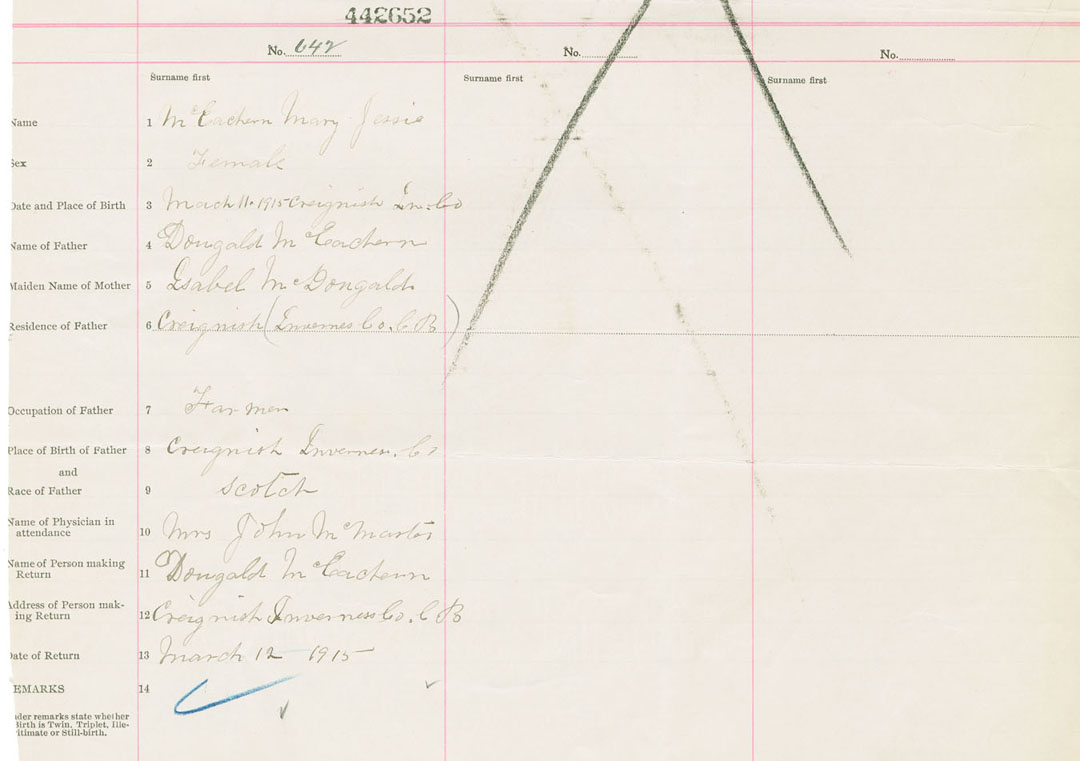 442652
No. 642 No. No.
Surname first Surname first Surname first
Name 1 McEachern Mary Jessie
Sex 2 Female
Date and Place of Birth 3 Mach 11. 1915 Creignish In. Co
Name of Father 4 Dougald McEachern
Maiden Name of Mother 5 Isabel McDougald
Residence of Father 6 Creignish (Invernes Co. C B)
Occupation of Father 7 Farmer
Place of Birth of Father 8 Creignish Inverness. Co
and
Race of Father 9 Scotch
Name of Physician in
attendance 10 Mrs John
Name of Person making
Return 11 Dougald McEachern
Address of Person mak-
ing Return 12 Creignish Inverness Co. C B
Date of Return 13 March 12 1915
EMARKS 14
nder remarks state whether
Birth is Twin, Triplet, Ille-
gitimate or Still-birth.